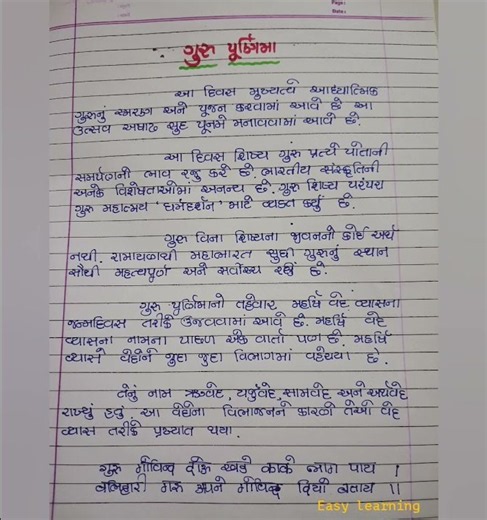 Page:
Date:
ગુરુ પૂર્ણિમા
આ દિવસ મુખ્યત્વે આધ્યાત્મિક
ગુરુનું સ્મરણ અને પૂજન કરવામાં આવે છે આ
ઉત્સવ અષાઢ સુદ પૂનમે મનાવવામાં આવે છે.
આ દિવસ શિષ્ય ગુરુ પ્રત્યે પોતાની
સમર્પણની ભાવ રજુ કરે છે. ભારતીય સંસ્કૃતિની
અનેક વિશેષતાઓમાં અનન્ય છે. ગુરુ શિષ્ય પરંપરા
ગુરુ મહાત્મય 'માર્ગદર્શન' માટે વ્યક્ત કર્યું છે.
ગુરુ વિના શિષ્યના જીવનનો કોઈ અર્થ
નથી. રામાયણથી મહાભારત સુધી ગુરુનું સ્થાન
સૌથી મહત્વપૂર્ણ અને સર્વોચ્ચ રહ્યું છે.
ગુરુ પૂર્ણિમાનો તહેવાર મહર્ષિ વેદ વ્યાસના
જન્મદિવસ તરીકે ઉજવવામાં આવે છે. મહર્ષિ વેદ
વ્યાસના નામના પાછળ એક વાર્તા પણ છે. મહર્ષિ
વ્યાસે વેદોને જુદા જુદા વિભાગમાં વહેંચ્યા છે.
તેનું નામ ઋગ્વેદ, યજુર્વેદ, સામવેદ અને અથર્વવેદ
રાખ્યું હતું. આ વેદોના વિભાજનને કારણે તેઓ વેદ
વ્યાસ તરીકે પ્રખ્યાત થયા.
ગુરુ ગોવિન્દ દોઉ ખડે કાકે લાગુ પાય ।
બલિહારી ગુરુ અપને ગોવિન્દ દિયો બતાય ।।
Easy learning